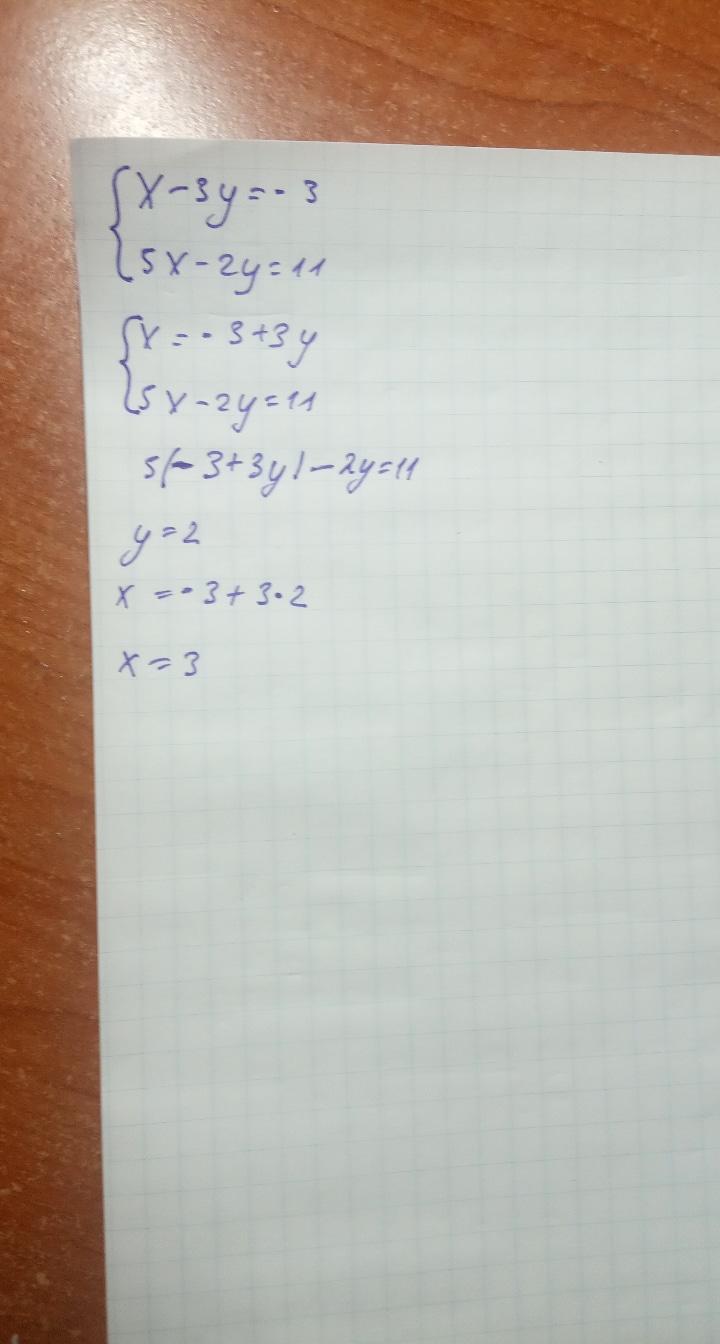 { x - 3y = - 3
5x - 2y = 11
{ x = - 3 + 3y
5x - 2y = 11
5(- 3 + 3y) - 2y = 11
y = 2
x = - 3 + 3 · 2
x = 3